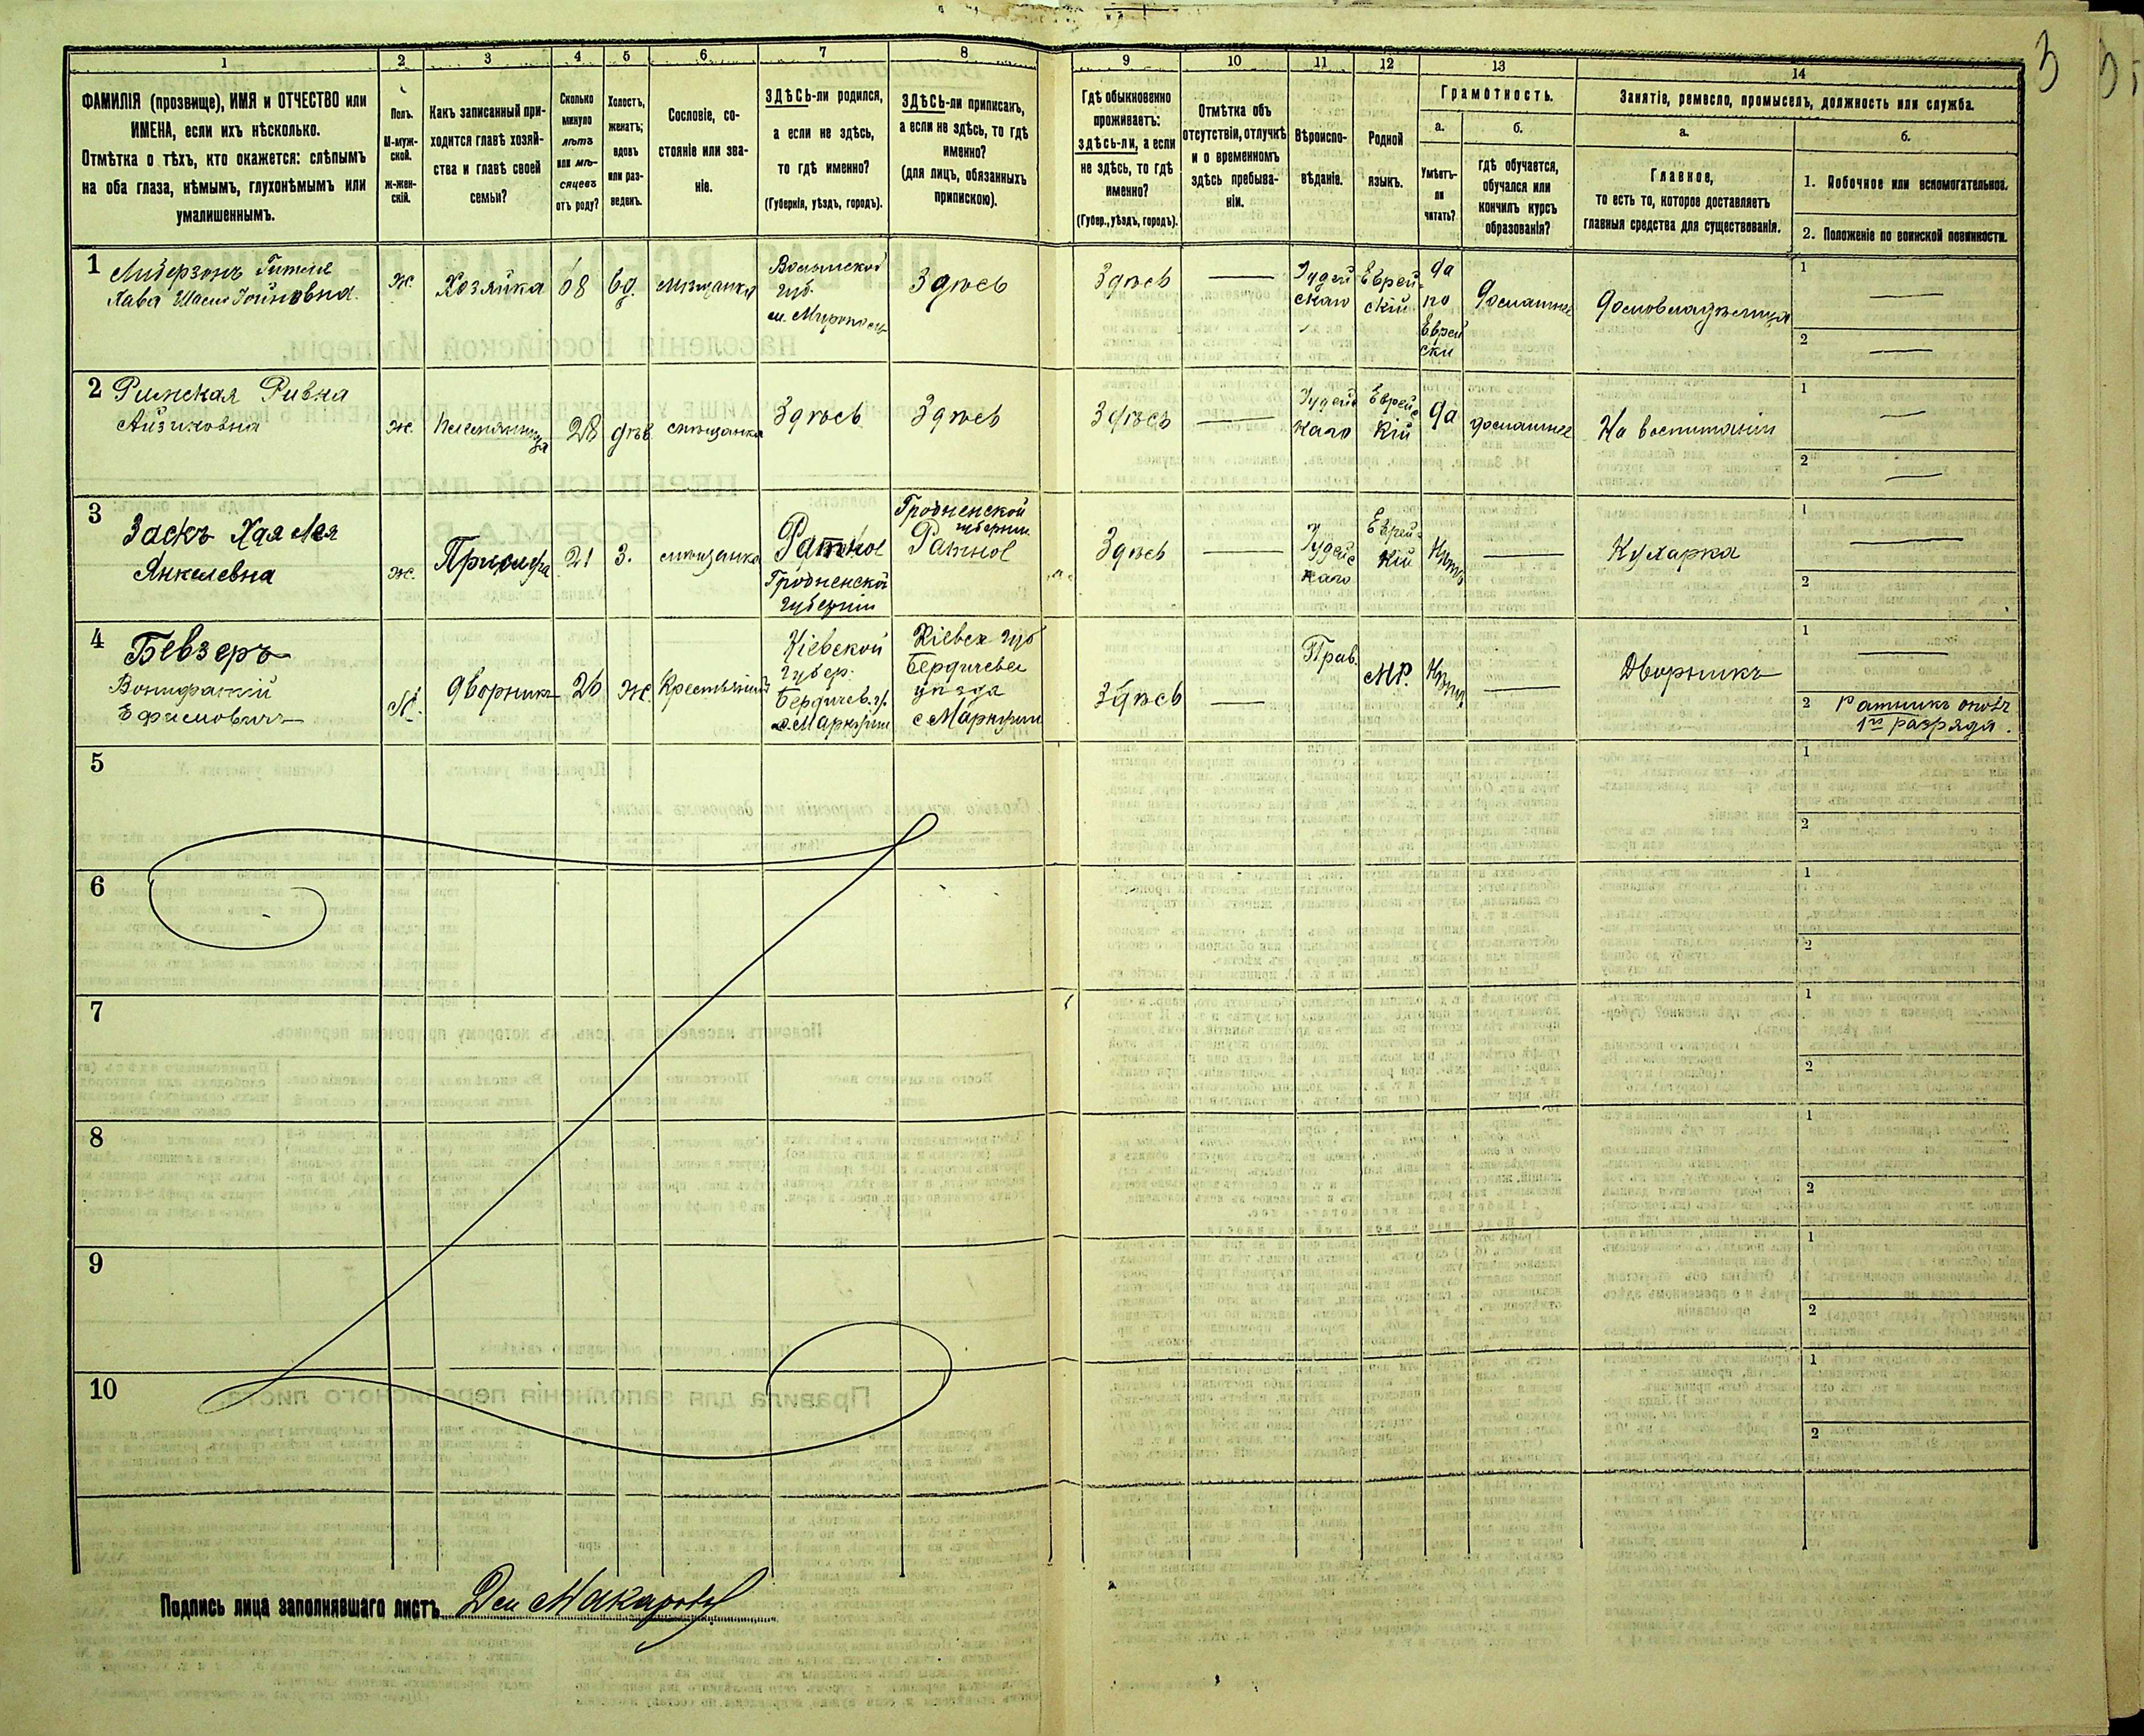 3
1
2
3
4
5
6
7
8
9
10
11
12
13
14
ФАМИЛІЯ (прозвище), ИМЯ и ОТЧЕСТВО или
ИМЕНА, если ихъ нѣсколько.
Отмѣтка о тѣхъ, кто окажется: слѣпымъ
на оба глаза, нѣмымъ, глухонѣмымъ или
умалишеннымъ.
Полъ.
М-муж-
ской.
ж-жен-
скій.
Какъ записанный при-
ходится главѣ хозяй-
ства и главѣ своей
семьи?
Сколько
минуло
лѣтъ
или мѣ-
сяцевъ
отъ роду?
Холостъ,
женатъ;
вдовъ
или раз-
веденъ.
Сословіе, со-
стояніе или зва-
ніе.
ЗДѢСЬ-ли родился,
а если не здѣсь,
то гдѣ именно?
(Губернія, уѣздъ, городъ).
ЗДѢСЬ-ли приписанъ,
а если не здѣсь, то гдѣ
именно?
(для лицъ, обязанныхъ
припискою).
Гдѣ обыкновенно
проживаетъ:
здѣсь-ли, а если
не здѣсь, то гдѣ
именно?
(Губер., уѣздъ, городъ).
Отмѣтка объ
отсутствіи, отлучкѣ
и о временномъ
здѣсь пребыва-
ніи.
Вѣроиспо-
вѣданіе.
Родной
языкъ.
Грамотность.
а.
Умѣетъ-
ли
читать?
б.
гдѣ обучается,
обучался или
кончилъ курсъ
образованія?
Занятіе, ремесло, промыселъ, должность или служба.
а.
Главное,
то есть то, которое доставляетъ
главныя средства для существованія.
б.
1. Побочное или вспомогательное.
2. Положеніе по воинской повинности.
1
Хава
ж.
Хозяйка
68
вд.
мѣщанка
Волынской
губ.
м.
Здѣсь
Здѣсь
Іудей
скаго
Еврей-
скій
да
по
Еврей
ски
домашнее
домовладѣлица
1
2
2 Римская Ривка
Айзиковна
ж.
Племянница
28
дѣв
мѣщанка
Здѣсь
Здѣсь
Здѣсь
Іудейс
каго
Еврейс
кій
да
домашнее
На воспитаніи
1
2
3
Заскъ Хая Лея
Янкелевна
ж.
Прислуга
21
з.
мѣщанка
Ратное
Гродненской
губерніи
Гродненской
губерніи
Ратное
Здѣсь
Іудейс
каго
Еврейс
кій
Нѣтъ
Кухарка
1
2
4
Бевзеръ
Бонифатій
Ефимовичъ
М.
дворникъ
26
ж.
Крестьянинъ
Кіевской
губер.
Бердичев. у.
с. Маркуши
Кіевск губ
Бердичевск
уѣзда
с Маркуши
Здѣсь
Прав.
МР.
Нѣтъ
Дворникъ
1
2 Ратникъ ополч
1го разряда.
5
1
2
6
1
2
7
1
2
8
1
2
9
1
2
10
1
2
Подпись лица заполнявшаго листъ Дем Макаровъ